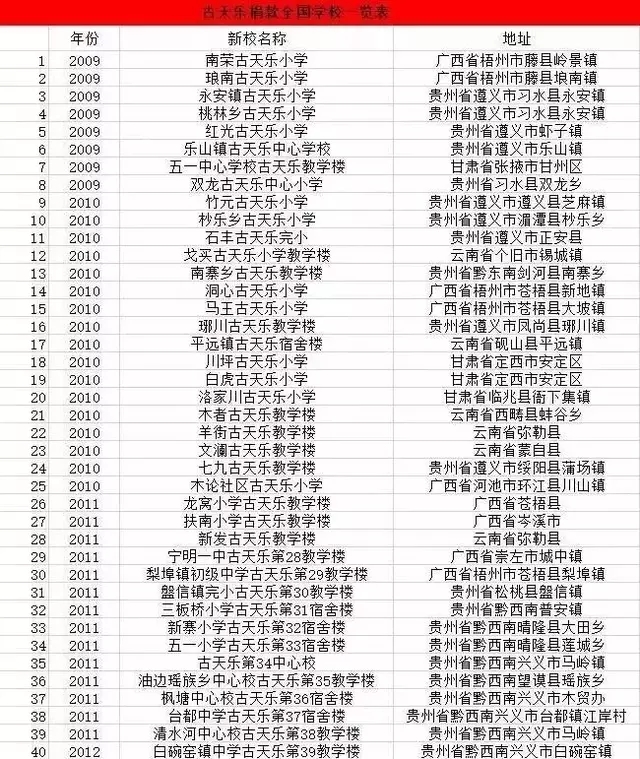 古天乐捐款全国学校一览表
年份 新校名称 地址
1 2009 南荣古天乐小学 广西省梧州市藤县岭景镇
2 2009 琅南古天乐小学 广西省梧州市藤县埌南镇
3 2009 永安镇古天乐小学 贵州省遵义市习水县永安镇
4 2009 桃林乡古天乐小学 贵州省遵义市习水县永安镇
5 2009 红光古天乐小学 贵州省遵义市虾子镇
6 2009 乐山镇古天乐中心学校 贵州省遵义市乐山镇
7 2009 五一中心学校古天乐教学楼 甘肃省张掖市甘州区
8 2009 双龙古天乐中心小学 贵州省习水县双龙乡
9 2010 竹元古天乐小学 贵州省遵义市遵义县芝麻镇
10 2010 杪乐乡古天乐小学 贵州省遵义市湄潭县杪乐乡
11 2010 石丰古天乐完小 贵州省遵义市正安县
12 2010 戈买古天乐小学教学楼 云南省个旧市锡城镇
13 2010 南寨乡古天乐教学楼 贵州省黔东南剑河县南寨乡
14 2010 洞心古天乐小学 广西省梧州市苍梧县新地镇
15 2010 马王古天乐小学 广西省梧州市苍梧县大坡镇
16 2010 琊川古天乐教学楼 贵州省遵义市凤尚县琊川镇
17 2010 平远镇古天乐宿舍楼 云南省砚山县平远镇
18 2010 川坪古天乐小学 甘肃省定西市安定区
19 2010 白虎古天乐小学 甘肃省定西市安定区
20 2010 洛家川古天乐小学 甘肃省临兆县衙下集镇
21 2010 木者古天乐教学楼 云南省西畴县蚌谷乡
22 2010 羊街古天乐教学楼 云南省弥勒县
23 2010 文澜古天乐教学楼 云南省蒙自县
24 2010 七九古天乐教学楼 贵州省遵义市绥阳县蒲场镇
25 2010 木论社区古天乐小学 广西省河池市环江县川山镇
26 2011 龙窝小学古天乐教学楼 广西省苍梧县
27 2011 扶南小学古天乐教学楼 广西省岑溪市
28 2011 新发古天乐教学楼 云南省弥勒县
29 2011 宁明一中古天乐第28教学楼 广西省崇左市城中镇
30 2011 梨埠镇初级中学古天乐第29教学楼 广西省梧州市苍梧县梨埠镇
31 2011 盤信镇完小古天乐第30教学楼 贵州省松桃县盤信镇
32 2011 三板桥小学古天乐第31宿舍楼 贵州省黔西南普安镇
33 2011 新寨小学古天乐第32宿舍楼 贵州省黔西南晴隆县大田乡
34 2011 五一小学古天乐第33宿舍楼 贵州省黔西南晴隆县莲城乡
35 2011 古天乐第34中心校 贵州省黔西南兴义市马岭镇
36 2011 油边瑶族乡中心校古天乐第35教学楼 贵州省黔西南望谟县瑶族乡
37 2011 枫塘中心校古天乐第36宿舍楼 贵州省黔西南兴义市木贾办
38 2011 台都中学古天乐第37宿舍楼 贵州省黔西南兴义市台都镇江岸村
39 2011 清水河中心校古天乐第38教学楼 贵州省黔西南兴义市马岭镇
40 2012 白碗窑镇中学古天乐第39教学楼 贵州省黔西南兴义市白碗窑镇